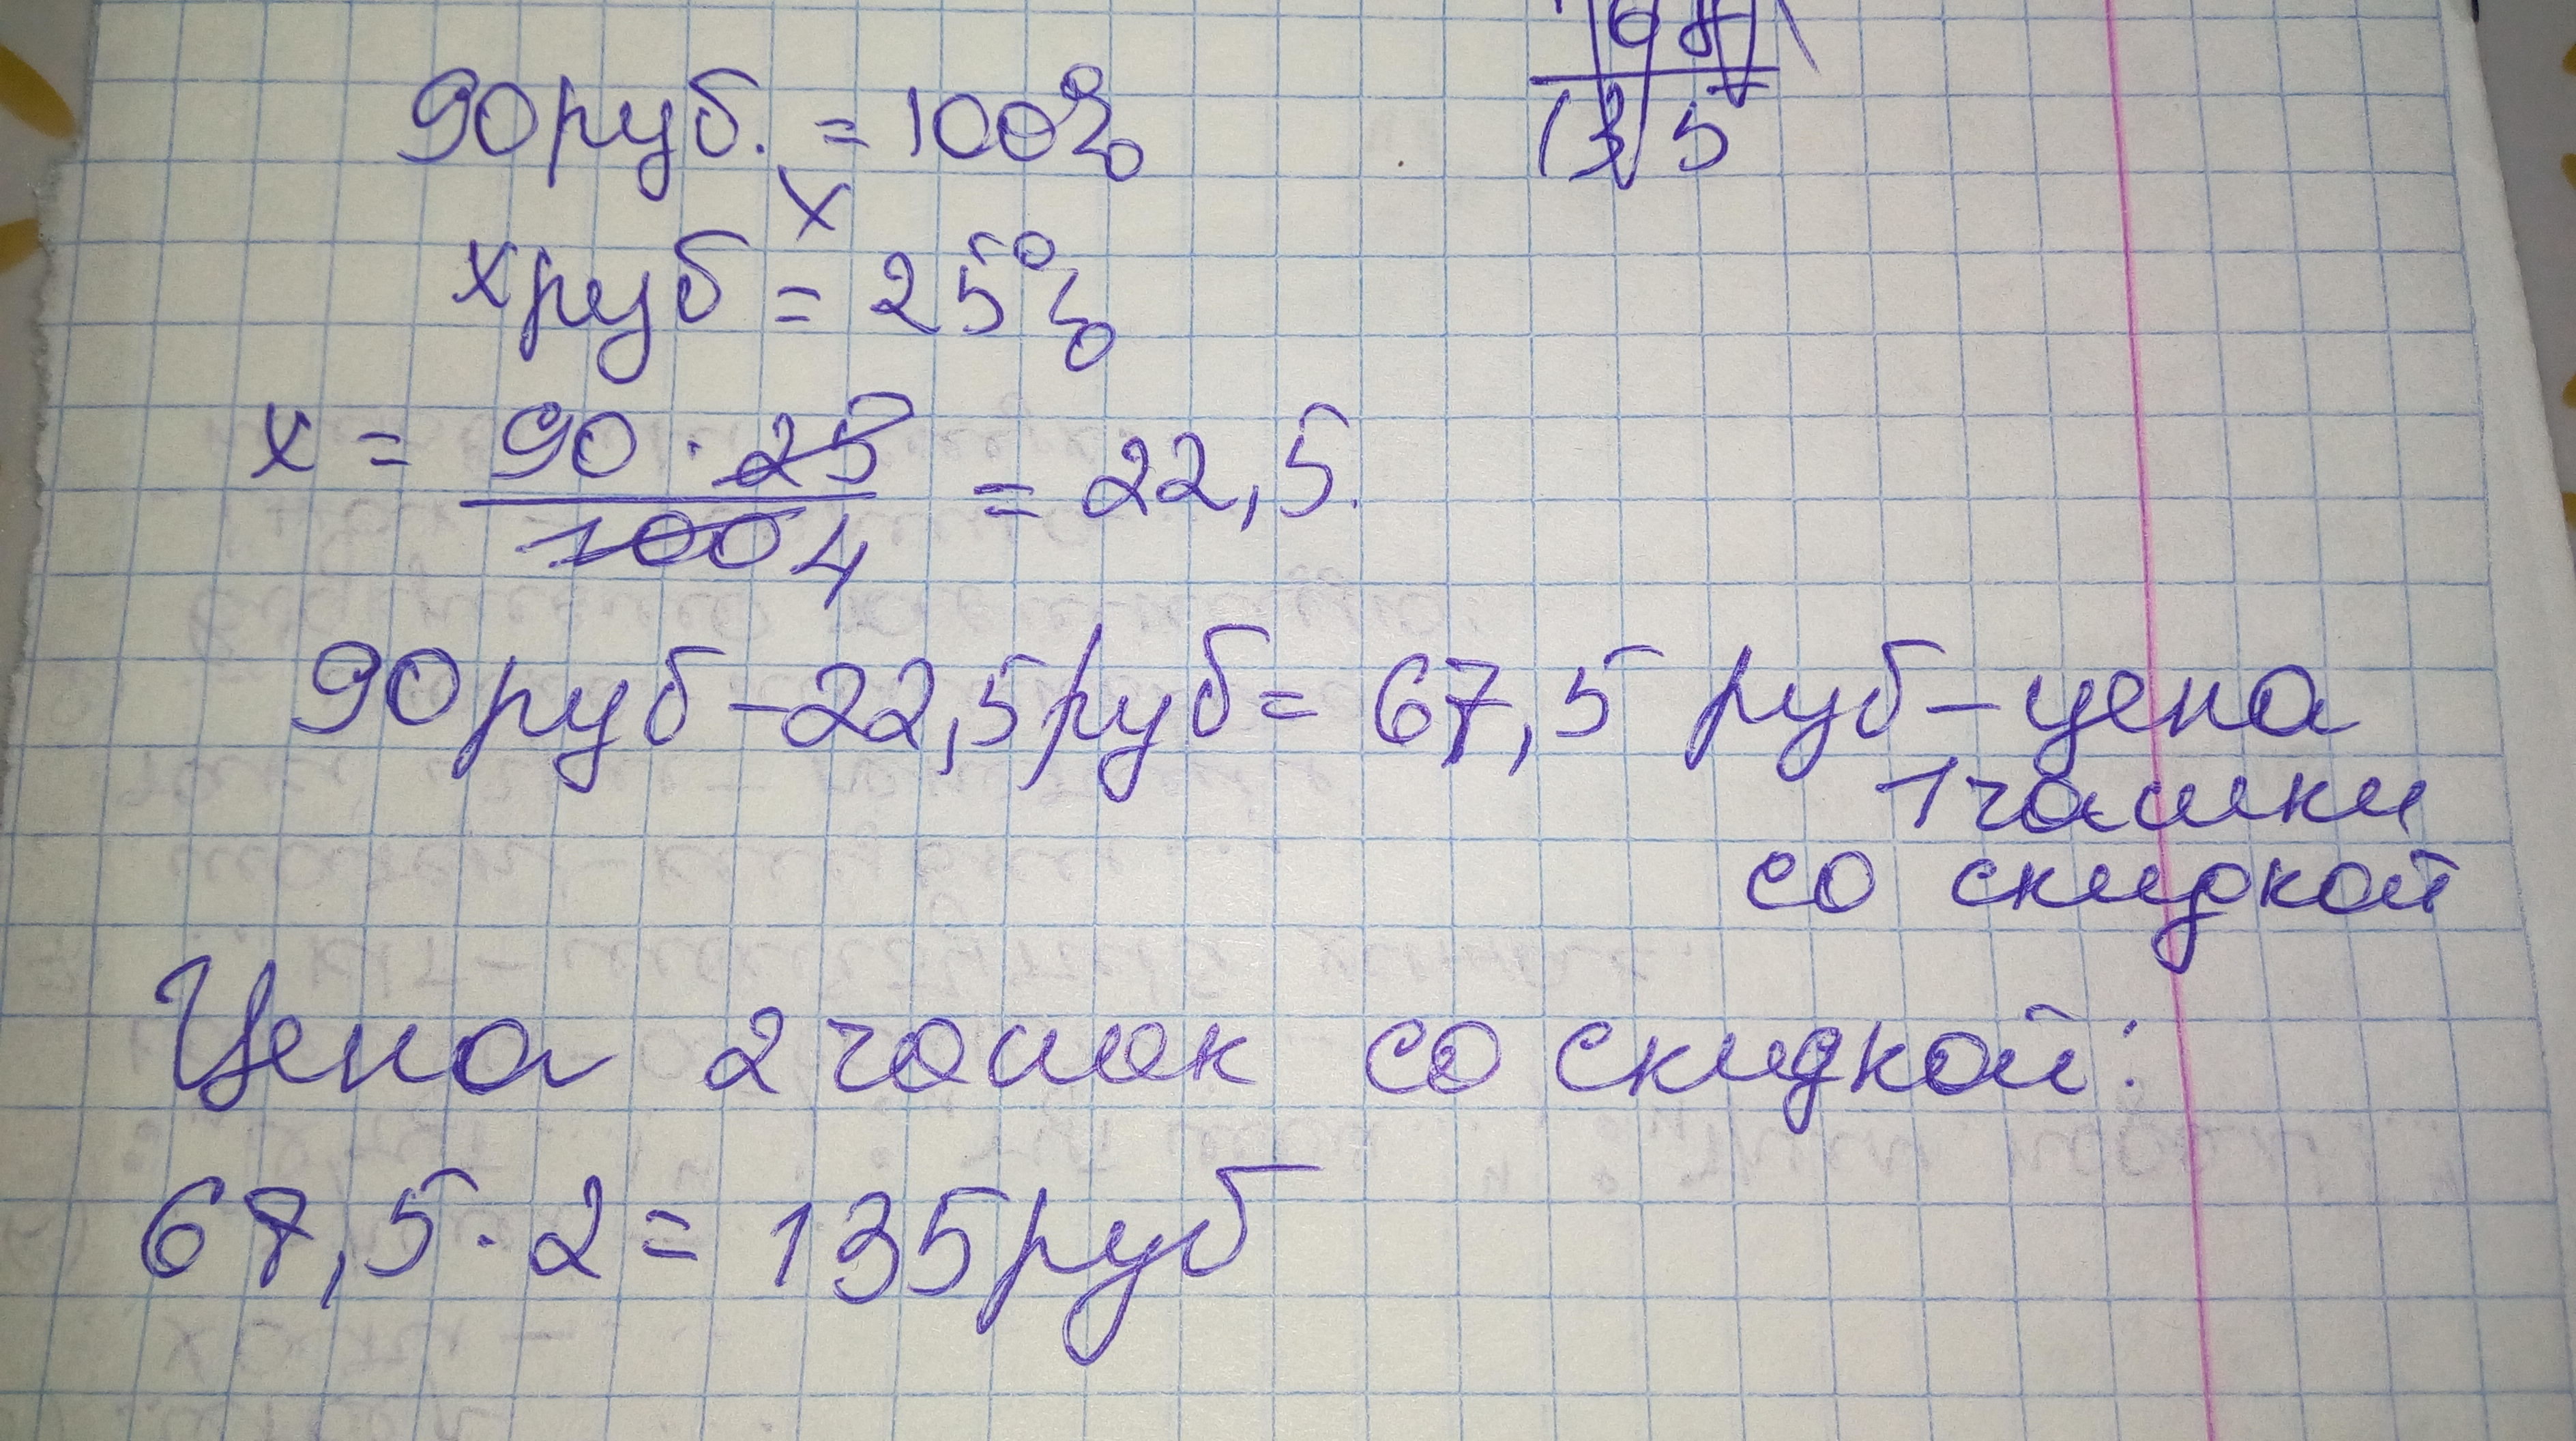 90 руб. = 100%
х
х руб = 25%
х = 90 · 25 / 100 4 = 22,5.
90 руб - 22,5 руб = 67,5 руб - цена
1 чашки
со скидкой
Цена 2 чашек со скидкой:
67,5 · 2 = 135 руб